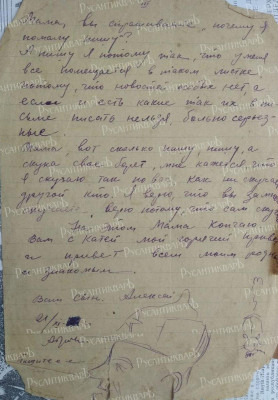 Мама, вы спрашиваете, почему я
помалу пишу?
Я пишу я потому так, что у меня
все помещается в таком листке,
потому, что новостей особых нет, а
если и есть какие так их в пи
сьме писать нельзя, больно серьез
ные.
Мама вот сколько пишу пишу, а
скука свое берет, мне кажется, что
я скучаю так по вас, как не скучает
другой кто. Я верю что вы за мной
скучаете, верю потому, что сам скучаю
На этом Мама Кончаю.
Вам с Катей мой горячий привет
и привет всем моим родным
и знакомым.
Ваш сын. Алексей
21/
РУСАНТИКВАРЪ